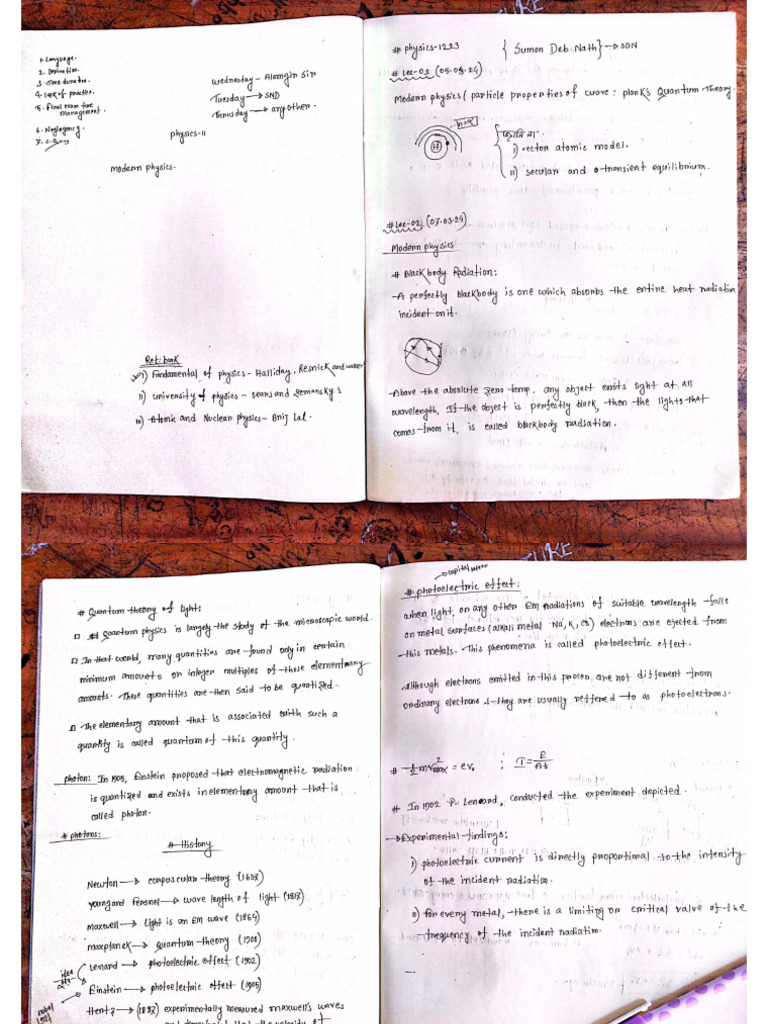 1. Language.
2. Derivation.
3. Time duration.
4. Lack of practice.
5. Final exam time
management.
6. Neglegency.
7. C. Quay
Wednesday - Alamgir Sir
Tuesday → SND
Thrusday → any other.
physics-II
Modern physics.
Ref: book
i) Fundamental of physics - Halliday, Resnick and walker
ii) University of physics - sears and zemansky's
iii) Atomic and Nuclear physics - Brij Lal.
# physics-1223 { Sumon Deb Nath } → SDN
# Lec-01 (05.03.24)
Modern physics (particle properties of wave: plank's Quantum Theory.
i) vector atomic model.
ii) secular and transient equilibrium.
# Lec-02 (07.03.24)
Modern physics
# Blackbody Radiation:
- A perfectly blackbody is one which absorbs the entire heat radiation
incident on it.
- Above the absolute zero temp. any object emits light at all
wavelength, If the object is perfectly black, then the lights that
comes from it, is called blackbody radiation.
# Quantum theory of light:
Quantum physics is largely the study of the microscopic world.
In that world, many quantities are found only in certain
minimum amounts or integer multiples of those elementary
amounts. These quantities are then said to be quantized.
The elementary amount that is associated with such a
quantity is called quantum of this quantity.
photon: In 1905, Einstein proposed that electromagnetic radiation
is quantized and exists in elementary amount that is
called photon.
# photons:
# History
Newton → corpuscular theory (1638)
young and fersnel → wave length of light (1813)
maxwell → light is an EM wave (1864)
maxplanck → quantum theory (1901)
Lenard → photoelectric effect (1902)
Einstein → photoelectric effect (1905)
Hentz → (1887) experimentally measured maxwell's waves
capital letter
# photoelectric effect:
when light, on any other EM radiations of suitable wavelength falls
on metal surfaces (alkali metal Na, K, Cs) electrons are ejected from
this metals. This phenomena is called photoelectric effect.
Although electrons emitted in this process, are not different from
ordinary electrons & they are usually reffered to as photoelectrons.
# ½ mv²max = eV₀ ; I = E/At
# In 1902 P. Lenard, conducted the experiment depicted.
→ Experimental findings:
i) photoelectric current is directly proportional to the intensity
of the incident radiation.
ii) for every metal, there is a limiting or critical value of the
frequency of the incident radiation.